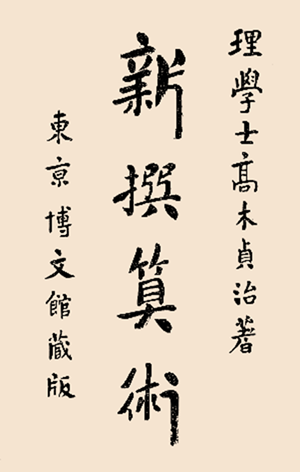 理學士高木貞治著
新撰算術
東京博文館蔵版